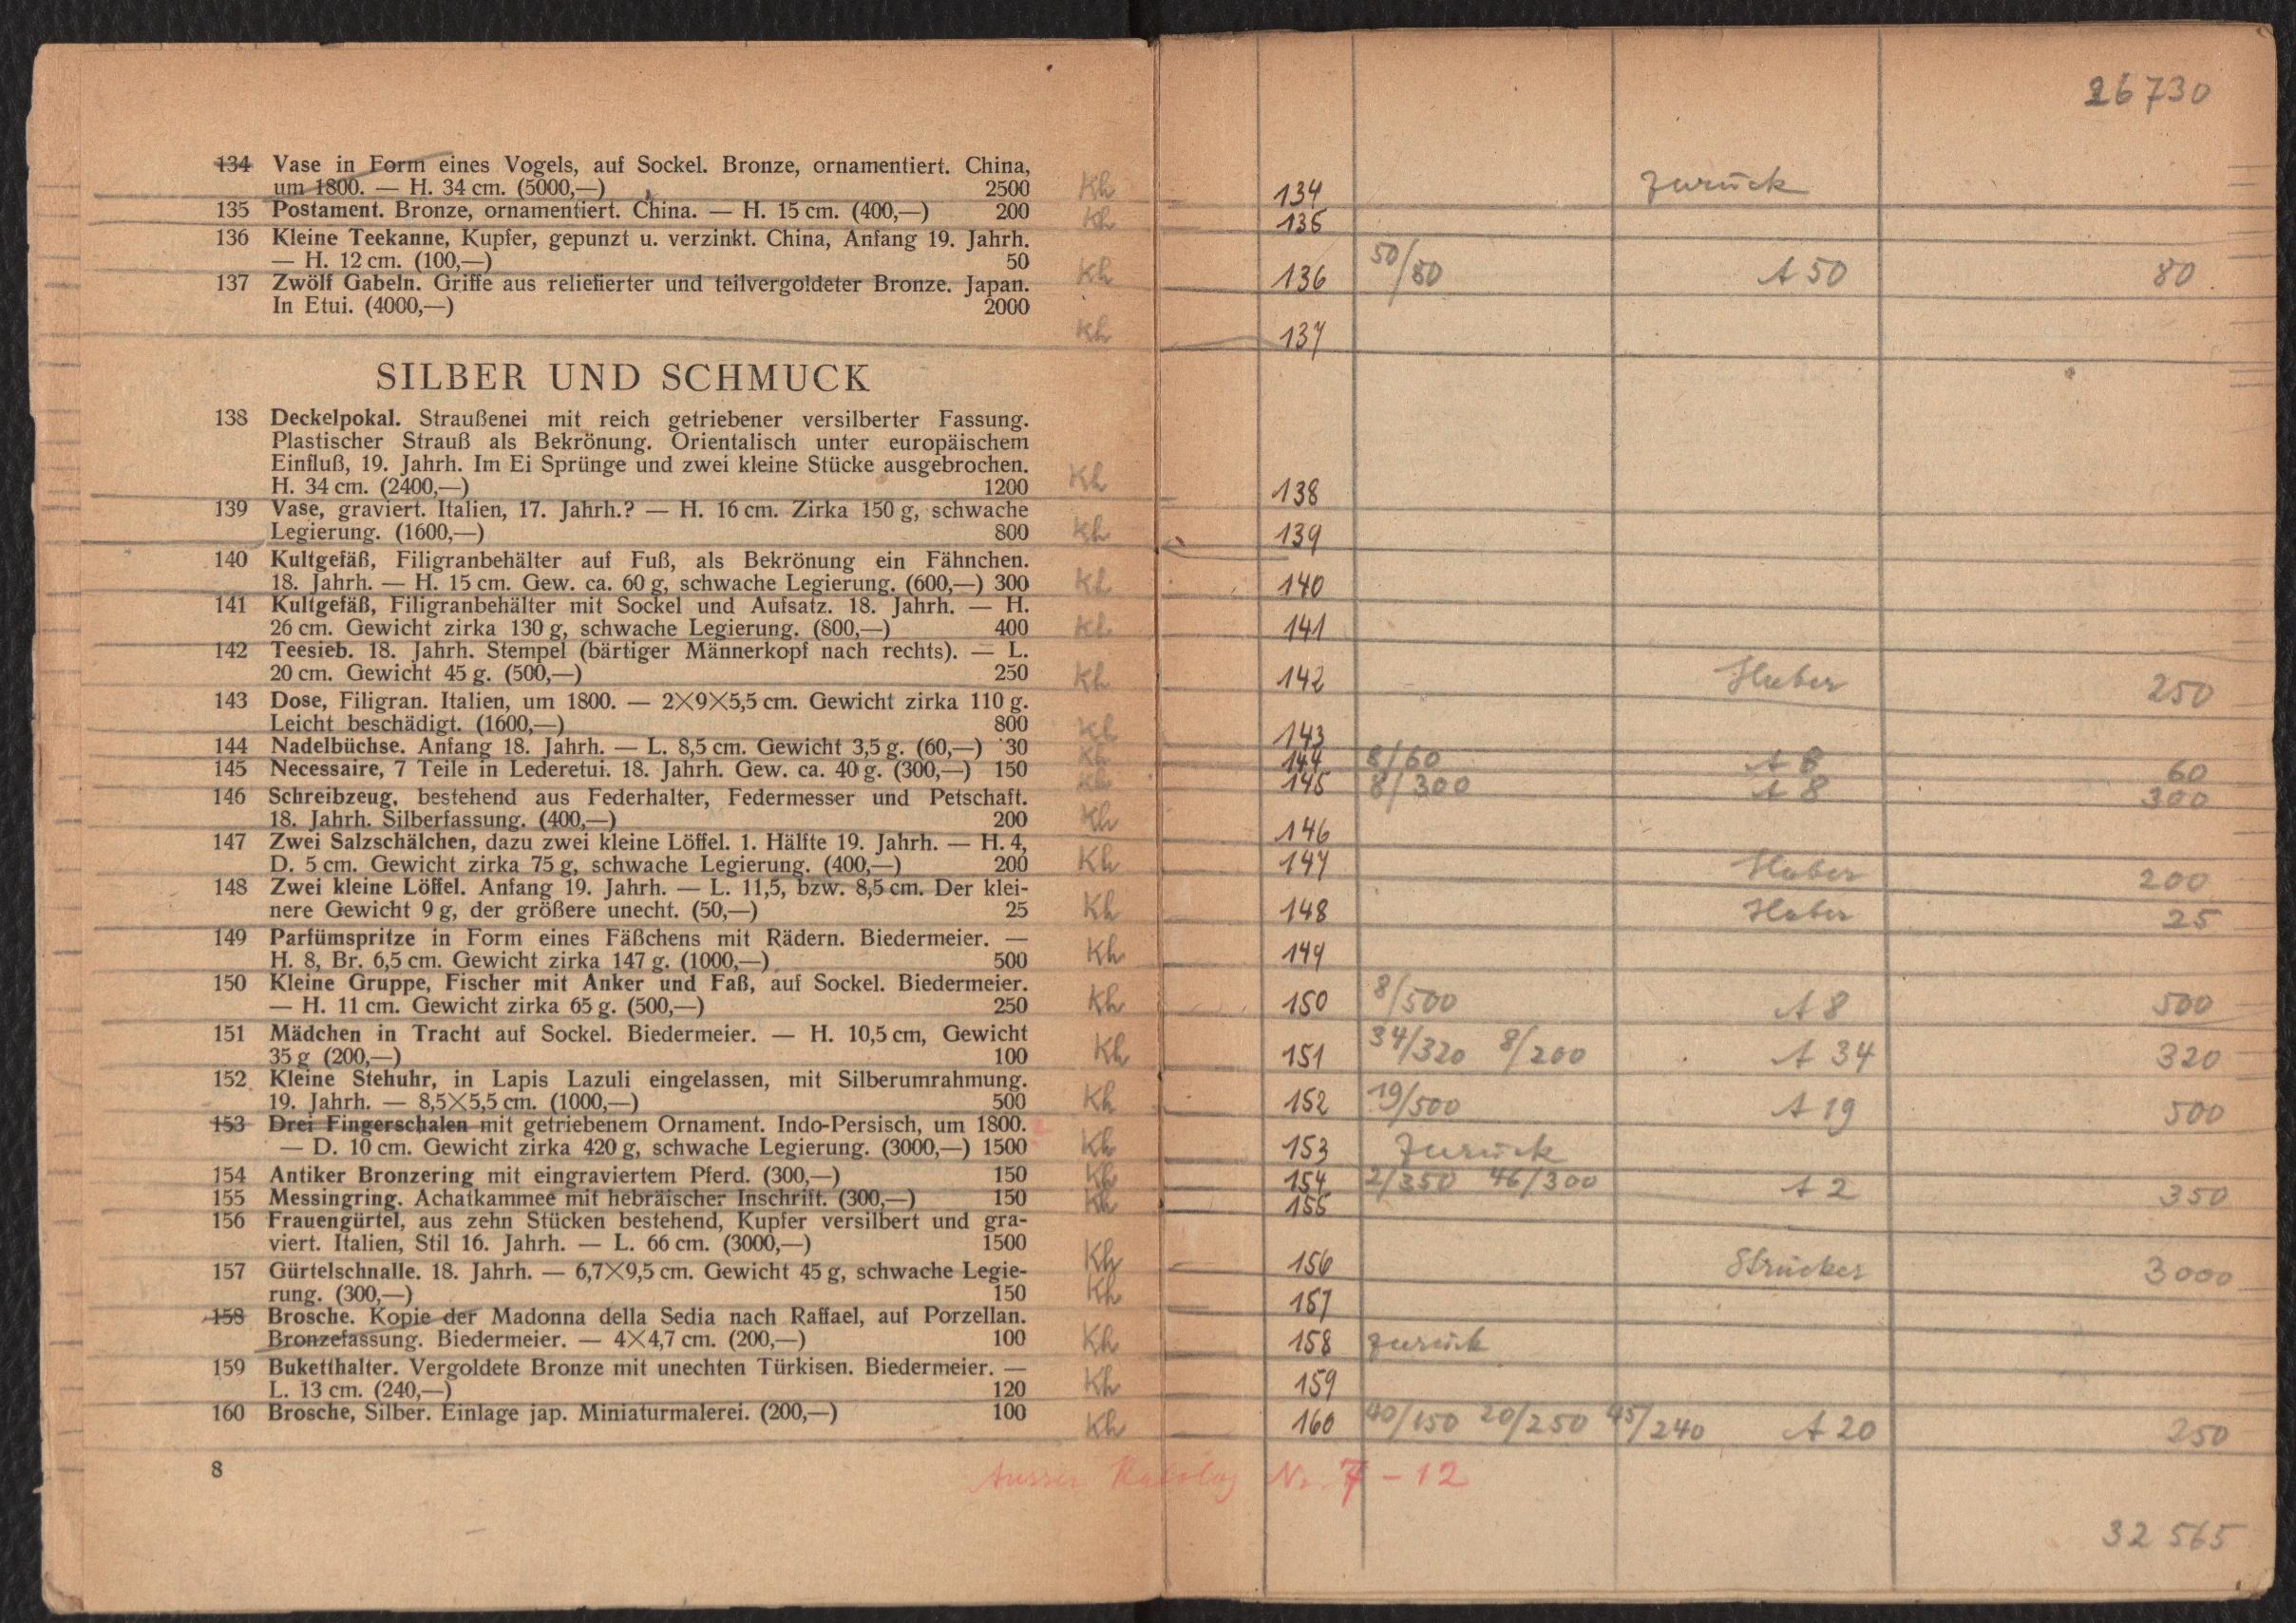 134 Vase in Form eines Vogels, auf Sockel. Bronze, ornamentiert. China,
um 1800. — H. 34 cm. (5000,—) 2500 Kh
135 Postament. Bronze, ornamentiert. China. — H. 15 cm. (400,—) 200 Kh
136 Kleine Teekanne, Kupfer, gepunzt u. verzinkt. China, Anfang 19. Jahrh.
— H. 12 cm. (100,—) 50 Kh
137 Zwölf Gabeln. Griffe aus reliefierter und teilvergoldeter Bronze. Japan.
In Etui. (4000,—) 2000
Kh
SILBER UND SCHMUCK
138 Deckelpokal. Straußenei mit reich getriebener versilberter Fassung.
Plastischer Strauß als Bekrönung. Orientalisch unter europäischem
Einfluß, 19. Jahrh. Im Ei Sprünge und zwei kleine Stücke ausgebrochen.
H. 34 cm. (2400,—) 1200 Kh
139 Vase, graviert. Italien, 17. Jahrh.? — H. 16 cm. Zirka 150 g, schwache
Legierung. (1600,—) 800 Kh
140 Kultgefäß, Filigranbehälter auf Fuß, als Bekrönung ein Fähnchen.
18. Jahrh. — H. 15 cm. Gew. ca. 60 g, schwache Legierung. (600,—) 300 Kh
141 Kultgefäß, Filigranbehälter mit Sockel und Aufsatz. 18. Jahrh. — H.
26 cm. Gewicht zirka 130 g, schwache Legierung. (800,—) 400 Kh
142 Teesieb. 18. Jahrh. Stempel (bärtiger Männerkopf nach rechts). — L.
20 cm. Gewicht 45 g. (500,—) 250 Kh
143 Dose, Filigran. Italien, um 1800. — 2×9×5,5 cm. Gewicht zirka 110 g.
Leicht beschädigt. (1600,—) 800 Kh
144 Nadelbüchse. Anfang 18. Jahrh. — L. 8,5 cm. Gewicht 3,5 g. (60,—) 30 Kh
145 Necessaire, 7 Teile in Lederetui. 18. Jahrh. Gew. ca. 40 g. (300,—) 150 Kh
146 Schreibzeug, bestehend aus Federhalter, Federmesser und Petschaft.
18. Jahrh. Silberfassung. (400,—) 200 Kh
147 Zwei Salzschälchen, dazu zwei kleine Löffel. 1. Hälfte 19. Jahrh. — H. 4,
D. 5 cm. Gewicht zirka 75 g, schwache Legierung. (400,—) 200 Kh
148 Zwei kleine Löffel. Anfang 19. Jahrh. — L. 11,5, bzw. 8,5 cm. Der klei-
nere Gewicht 9 g, der größere unecht. (50,—) 25 Kh
149 Parfümspritze in Form eines Fäßchens mit Rädern. Biedermeier. —
H. 8, Br. 6,5 cm. Gewicht zirka 147 g. (1000,—) 500 Kh
150 Kleine Gruppe, Fischer mit Anker und Faß, auf Sockel. Biedermeier.
— H. 11 cm. Gewicht zirka 65 g. (500,—) 250 Kh
151 Mädchen in Tracht auf Sockel. Biedermeier. — H. 10,5 cm, Gewicht
35 g (200,—) 100 Kh
152 Kleine Stehuhr, in Lapis Lazuli eingelassen, mit Silberumrahmung.
19. Jahrh. — 8,5×5,5 cm. (1000,—) 500 Kh
153 Drei Fingerschalen mit getriebenem Ornament. Indo-Persisch, um 1800.
— D. 10 cm. Gewicht zirka 420 g, schwache Legierung. (3000,—) 1500 Kh
154 Antiker Bronzering mit eingraviertem Pferd. (300,—) 150 Kh
155 Messingring. Achatkammee mit hebräischer Inschrift. (300,—) 150 Kh
156 Frauengürtel, aus zehn Stücken bestehend, Kupfer versilbert und gra-
viert. Italien, Stil 16. Jahrh. — L. 66 cm. (3000,—) 1500 Kh
157 Gürtelschnalle. 18. Jahrh. — 6,7×9,5 cm. Gewicht 45 g, schwache Legie-
rung. (300,—) 150 Kh
158 Brosche. Kopie der Madonna della Sedia nach Raffael, auf Porzellan.
Bronzefassung. Biedermeier. — 4×4,7 cm. (200,—) 100 Kh
159 Buketthalter. Vergoldete Bronze mit unechten Türkisen. Biedermeier. —
L. 13 cm. (240,—) 120 Kh
160 Brosche, Silber. Einlage jap. Miniaturmalerei. (200,—) 100 Kh
8
Ausser Katalog Nr. 7 - 12
26730
134 zurück
135
136 50/80 A 50 80
137
138
139
140
141
142 Huber 250
143
144 8/60 A 8 60
145 8/300 A 8 300
146
147 Huber 200
148 Huber 25
149
150 8/500 A 8 500
151 34/320 8/200 A 34 320
152 19/500 A 19 500
153 Zurück
154 2/350 46/300 A 2 350
155
156 Strücker 3000
157
158 zurück
159
160 40/150 20/250 45/240 A 20 250
32565